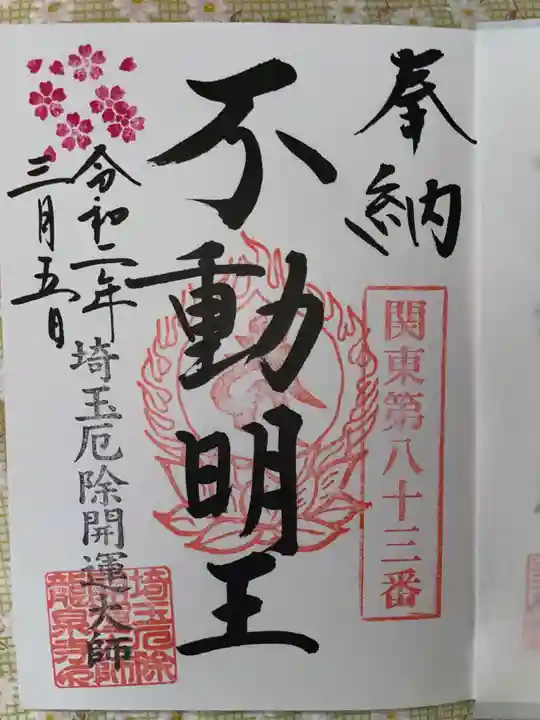 奉納
関東第八十三番
不動明王
令和二年
三月五日
埼玉厄除開運大師
埼玉厄除